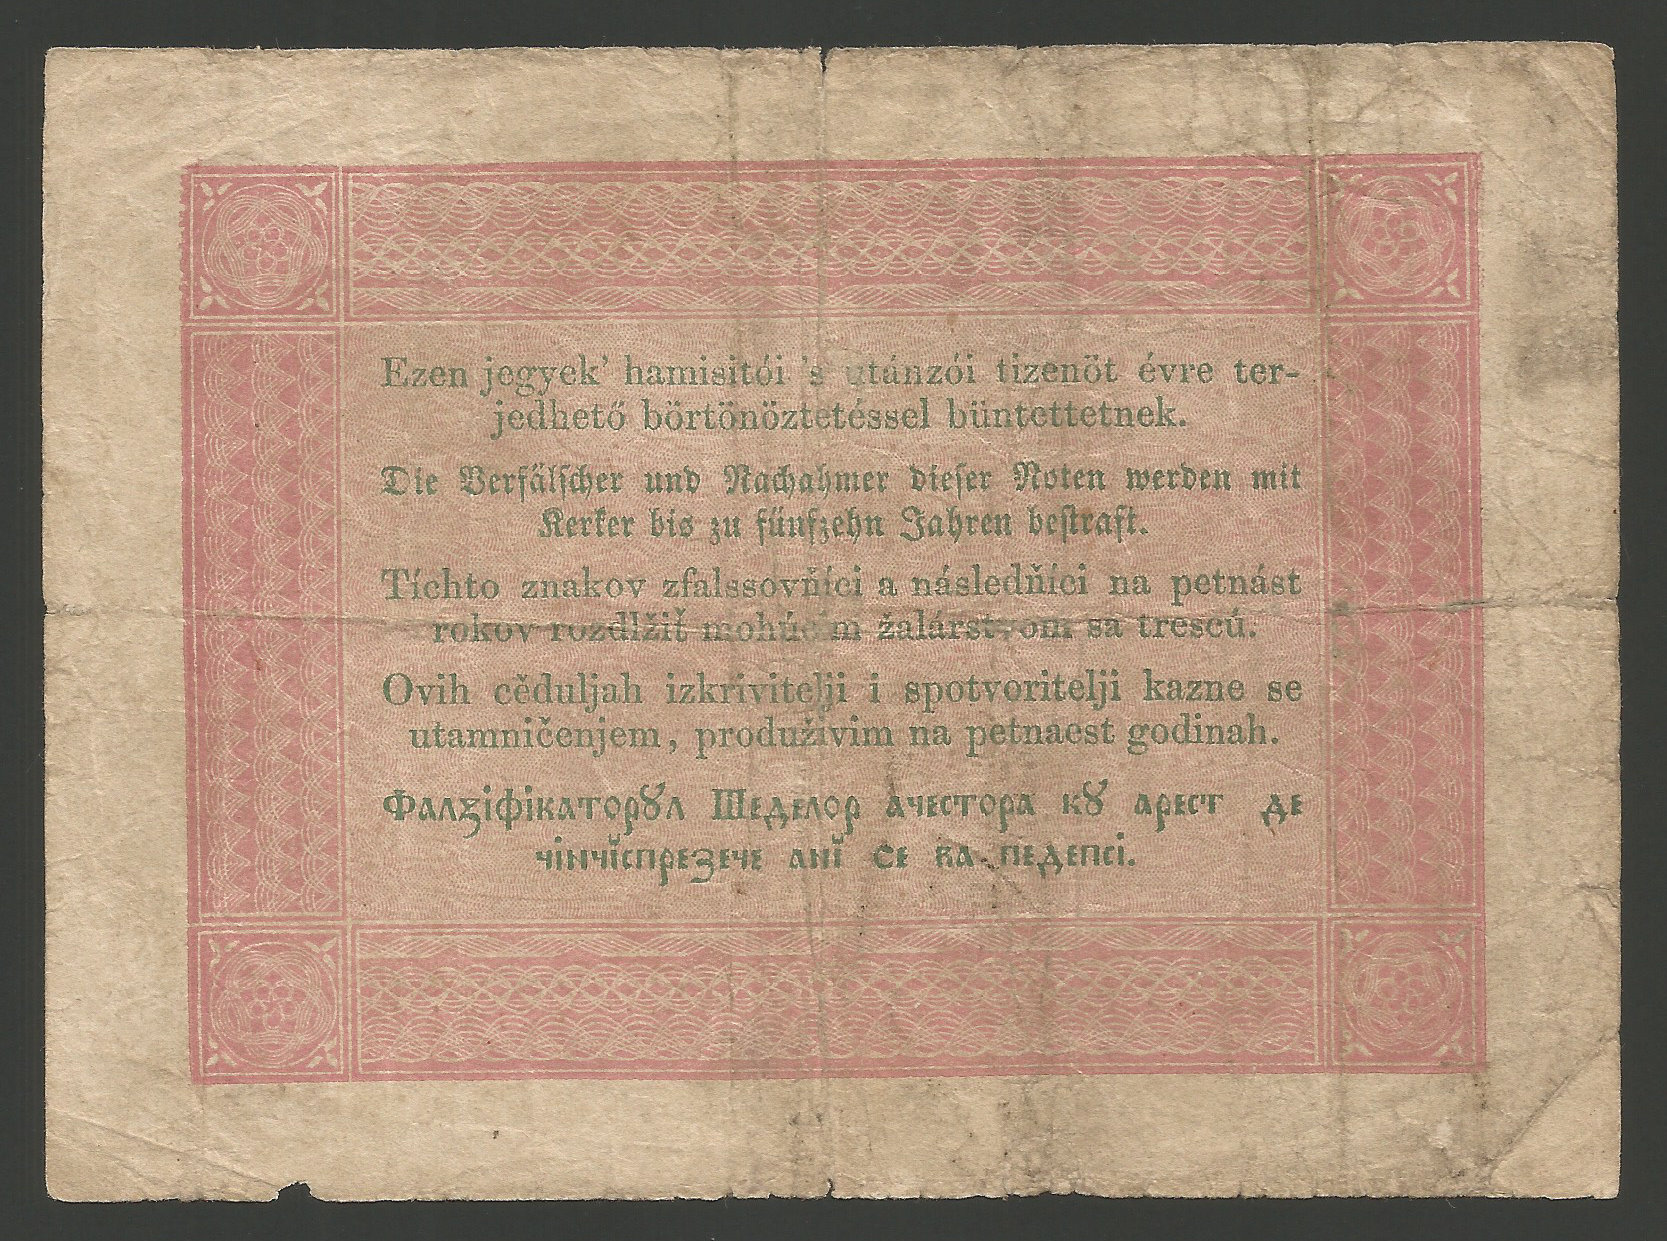 Ezen jegyek’ hamisitói ’s utánzói tizenöt évre ter-
jedhető börtönöztetéssel büntettetnek.
Die Verfälscher und Nachahmer dieser Noten werden mit
Kerker bis zu fünfzehn Jahren bestraft.
Tíchto znakov zfalssovňíci a následňíci na petnást
rokov rozdlžiť mohúcim žalárstvom sa trescú.
Ovih cĕduljah izkrivitelji i spotvoritelji kazne se
utamničenjem, produživim na petnaest godinah.
Фалꙁіфікаторꙋл Шеделор ачестора кꙋ арест де
чінчĭспрезече анĭ се ва педепсі.